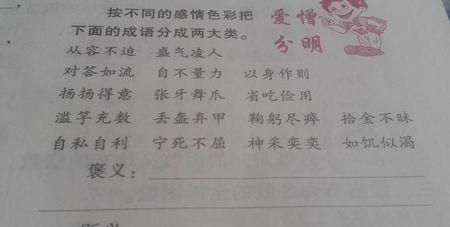 按不同的感情色彩把
下面的成语分成两大类。
爱憎
分明
从容不迫 盛气凌人
对答如流 自不量力 以身作则
扬扬得意 张牙舞爪 省吃俭用
滥竽充数 丢盔弃甲 鞠躬尽瘁 拾金不昧
自私自利 宁死不屈 神采奕奕 如饥似渴
褒义：